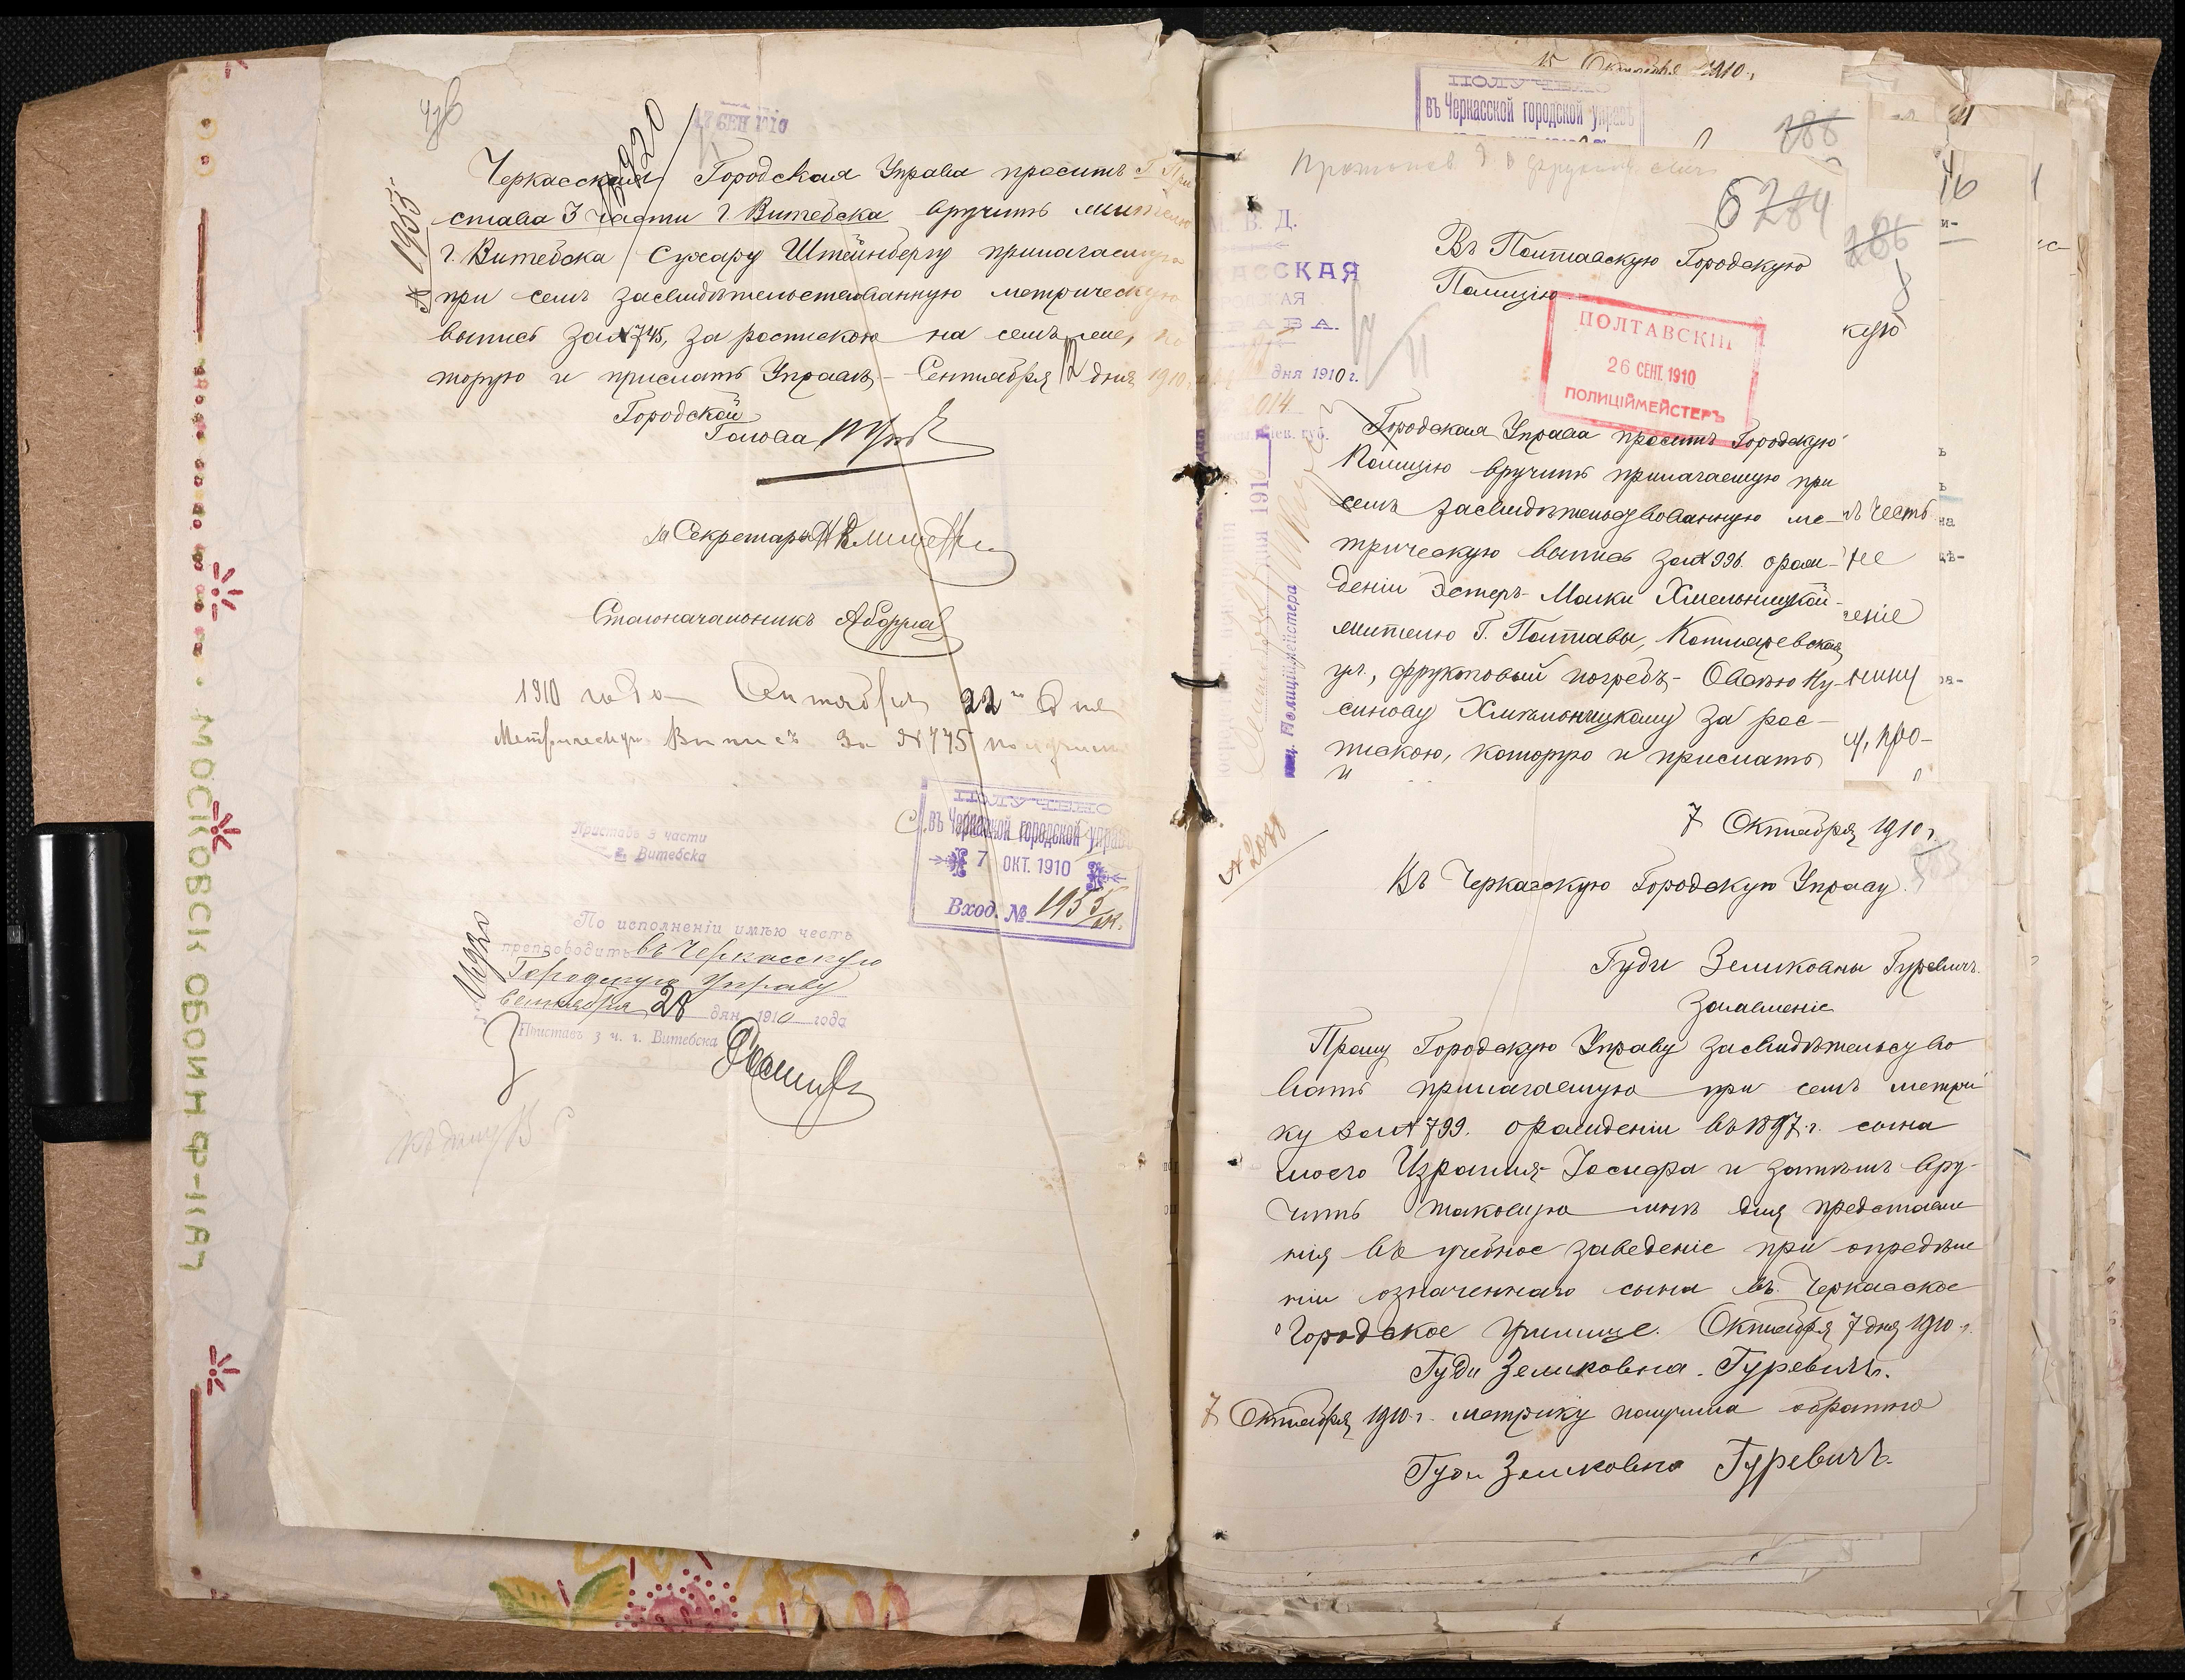 17 СЕН 1910
Черкасская Городская Управа проситъ Г. При
става 3 части г. Витебска вручить жителю
г. Витебска Сухару Штейнбергу прилагаемую
при семъ засвидѣтельствованную метрическую
выпись за № 745, за роспискою на семъ же, ко
торую и прислать Управѣ. Сентября 12 дня 1910
№ 1955
Городской
Голова
За Секретаря
Столоначальникъ
1910 года Сентября 22 дня
Метрическую Выпись за № 745 получилъ
Приставъ 3 части
г. Витебска
ПОЛУЧЕНО
въ Черкасской городской управѣ
7 ОКТ. 1910
Вход. № 1955
По исполненіи имѣю честь
препроводить въ Черкасскую
Городскую Управу
Сентября 28 дня 1910 года
Приставъ 3 ч. г. Витебска
МОСКОВСК ОБОЙН Ф-КА
15 Октября 1910 г.
ПОЛУЧЕНО
въ Черкасской городской управѣ
288
284
286
М. В. Д.
КАССКАЯ
АЯ
АВА.
дня 1910 г.
2014
Въ Полтавскую Городскую
Полицію
ПОЛТАВСКІЙ
26 СЕНТ. 1910
ПОЛИЦІЙМЕЙСТЕРЪ
Городская Управа проситъ Городскую
Полицію вручить прилагаемую при
семъ засвидѣтельствованную ме-
трическую выпись за № 996 о рож-
деніи Эстеръ-Малки Хмельницкой
жителю г. Полтавы, Котляревская
ул., фруктовый погребъ – Овсѣю Ну-
синову Хмѣльницкому за рос-
пискою, которую и прислать
Полиціймейстера
кую
ъ честь
не
ченіе
, про-
№ 2088
7 Октября 1910 г.
Въ Черкасскую Городскую Управу.
Гуди Зельковны Гуревичъ
Заявленіе
Прошу Городскую Управу засвидѣтельство
вать прилагаемую при семъ метри
ку за № 799. о рожденіи въ 1897 г. сына
моего Израиля-Іосифа и затѣмъ вру-
чить таковую мнѣ для представле
нія въ учебное заведеніе при опредѣле
ніи означеннаго сына въ Черкасское
Городское училище. Октября 7 дня 1910 г.
Гуди Зельковна Гуревичъ.
7 Октября 1910 г. метрику получила обратно
Гуди Зельковна Гуревичъ.